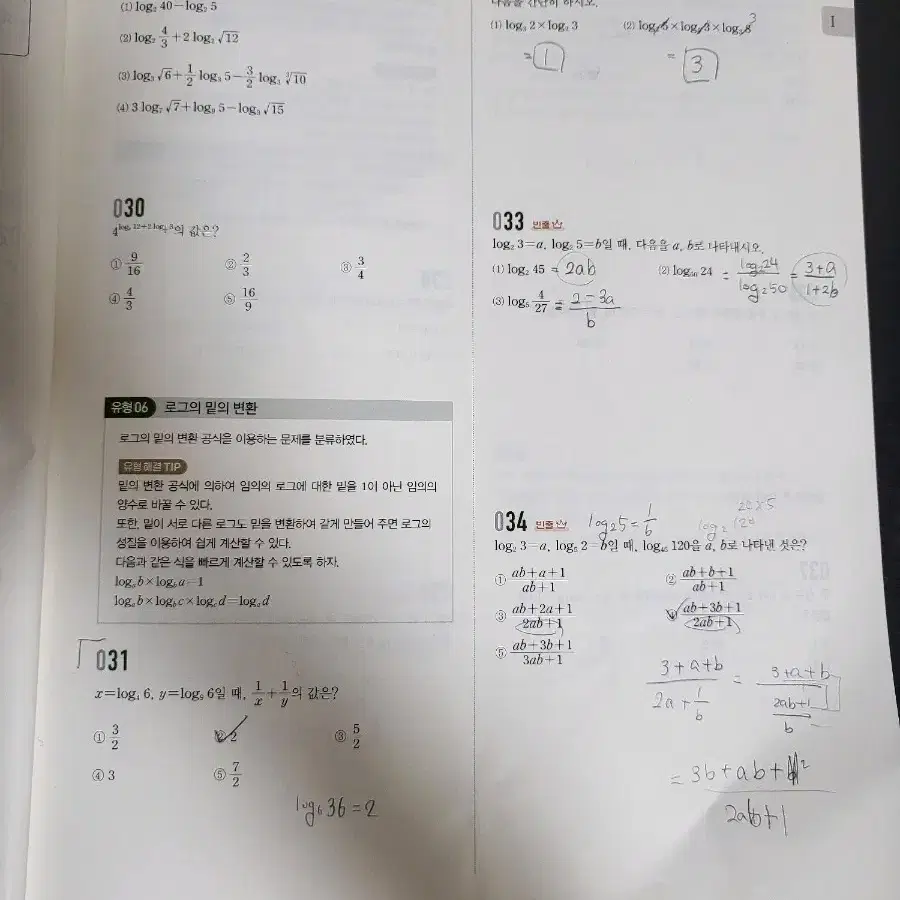 (1) log₂ 40－log₂ 5
(2) log₂ 4/3＋2 log₂ √12
(3) log₃ √6＋1/2 log₃ 5－3/2 log₃ ³√10
(4) 3 log₇ √7＋log₉ 5－log₉ √15
030
의 값은?
① 9/16 ② 2/3 ③ 3/4
④ 4/3 ⑤ 16/9
유형 06 로그의 밑의 변환
로그의 밑의 변환 공식을 이용하는 문제를 분류하였다.
유형 해결 TIP
밑의 변환 공식에 의하여 임의의 로그에 대한 밑을 1이 아닌 임의의
양수로 바꿀 수 있다.
또한, 밑이 서로 다른 로그도 밑을 변환하여 같게 만들어 주면 로그의
성질을 이용하여 쉽게 계산할 수 있다.
다음과 같은 식을 빠르게 계산할 수 있도록 하자.
logₐb×log_b a=1
logₐb×log_b c×log_c d=logₐd
031
x=log₄ 6, y=log₉ 6일 때, 1/x＋1/y의 값은?
① 3/2 ② 2 ③ 5/2
④ 3 ⑤ 7/2
log₆36=2
다음을 간단히 하시오.
(1) log₃ 2×log₂ 3
=1
=3
I
033 빈출
log₂ 3=a, log₂ 5=b일 때, 다음을 a, b로 나타내시오.
(1) log₂ 45 = 2ab (2) log₅₀ 24 = log₂24/log₂50 = 3+a/1+2b
(3) log₅ 4/27 = 2-3a/b
034 빈출 log₂5=1/b
log₂ 3=a, log₅ 2=b일 때, log₄₅ 120을 a, b로 나타낸 것은?
① ab+a+1/ab+1 ② ab+b+1/ab+1
③ ab+2a+1/2ab+1 ④ ab+3b+1/2ab+1
⑤ ab+3b+1/3ab+1
3+a+b/2a+1/b = 3+a+b/2ab+1/b